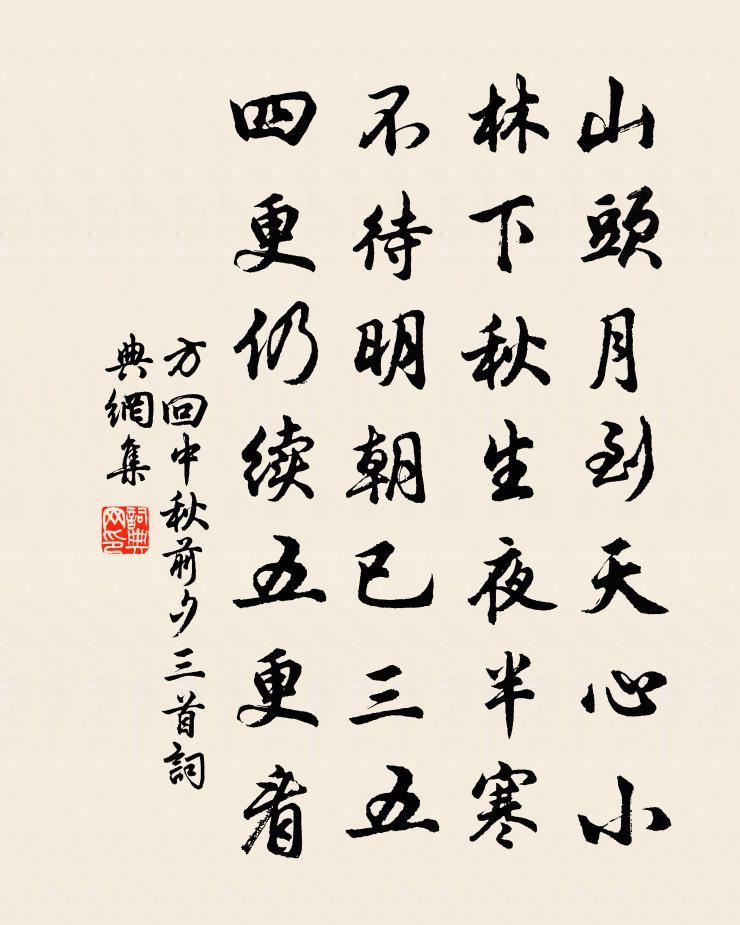 山頭月到天心小
林下秋生夜半寒
不待明朝已三五
四更仍续五更看
方回中秋前夕三首詞
典網集
詞典网印